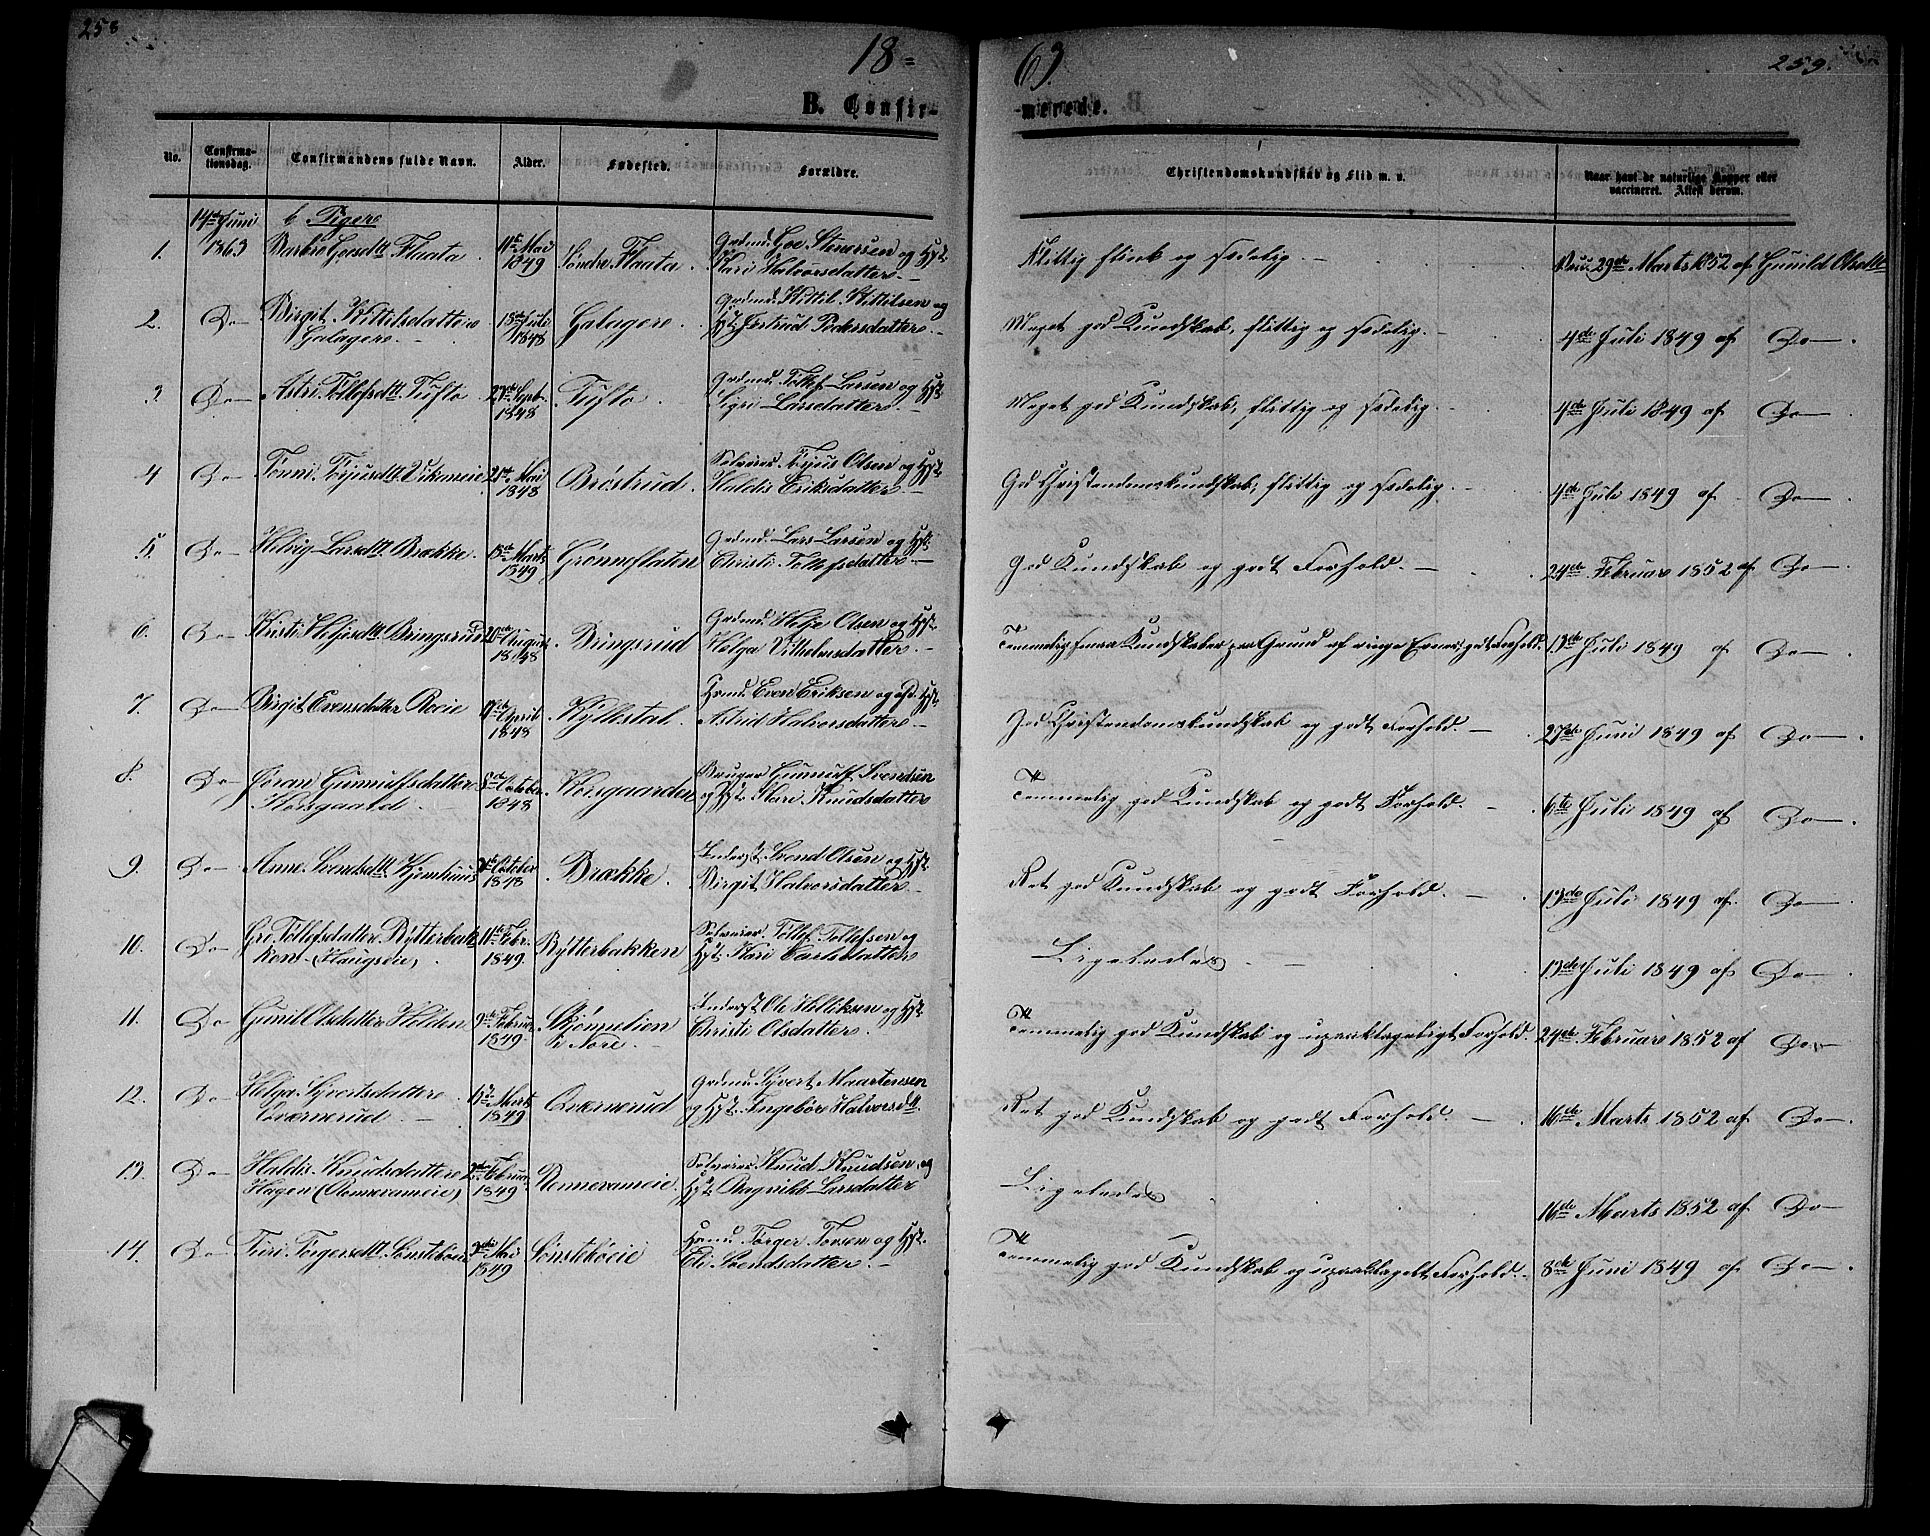 258
18=
63.
259.
B. Confir-
-merede.
No.
Confirma-
tionsdag.
Confirmandens fulde Navn.
Alder.
Fødested.
Forældre.
Christendomskundskab og Flid m. v.
Naar havt de naturlige Kopper eller
vaccineret. Attest derom.
14de Juni b Piger
1. 1863 Barbro Goesdtt Flaata 11te Mai 1849 Søndre Flaata. Gadmd. Goe Stenersen og Hst. Kari Halvorsdatter. Flittig flink og sædelig. Vacc. 29de Marts 1852 af Gunild Olsdtt
2. Do Birgit Kittilsdatter Galager. 18de Juli 1848 Galager. Gadmd. Kittil Kittilsen og Hst. Gertrud Pedersdatter. Meget god Kundskab, flittig og sædelig. 4de Juli 1849 af Do
3 Do Astri Tollefsdtt Tufto 27de Septr. 1848 Tufto. Gadmd. Tollef Larsen og Hst. Sigri Larsdatter. Meget god Kundskab, flittig og sædelig. 4de Juli 1849 af Do
4 Do Tonni Torjusdtt 21de Mai 1848 Brøstrud. Selveier Torjus Olsen og Hst. Haldis Eriksdatter. God Christendomskundskab, flittig og sædelig. 4de Juli 1849 af Do
5. Do Helvig Larsdtt Brække. 15de Marts 1849 Grønneflaten Gadmd. Lars Larsen og Hst. Christi Tollefsdatter. God Kundskab og godt Forhold. 24de Februar 1852 af Do
6. Do Kristi Heljesdtt Bringsrud 20de August 1848 Bringsrud Gadmd. Helje Olsen og Hst. Helga Vilhelmsdatter. Temmelig smaa Kundskaber paa Grund af ringe Evner; godt Forhold. 13de Juli 1849 af Do
7. Do Birgit Evensdatter Roeie 17de April 1848 Kyllestal. Hmd. Even Eriksen og Hst. Astrid Halvorsdatter. God Christendomskundskab og godt Forhold. 27de Juni 1849 af Do
8. Do Jøran Gunnulfsdatter Korsgaard. 5de October 1848 Korsgaarden Bruger Gunnulf Svendsen og Hst. Kari Knudsdatter Temmelig god Kundskab og godt Forhold. 6te Juli 1849 af Do
9. Do Anne Svendsdtt Hjemhuus October 1848 Brække. Inderst. Svend Olsen og Hst. Birgit Halvorsdatter. Ret god Kundskab og godt Forhold. 13de Juli 1849 af Do
10. Do Gro Tollefsdatter Rytterbakken (Haugseie). 11te Febr. 1849. Rytterbakken Selveier Tollef Tollefsen og Hst. Kari Carlsdatter Ligeledes. 13de Juli 1849 af Do
11. Do Gunil Olsdatter Holden 9de Februar 1849. Skjønnelien i Nore. Inderst Ole Helliksen og Hst. Christi Olsdatter. Temmelig god Kundskab og upaaklageligt Forhold. 24de Februar 1852 af Do
12. Do Helga Syvertsdatter Qværnerud. Marts 1849 Qværnerud Gadmd. Syvert Maartensen og Hst. Ingebor Halvorsdtt. Ret god Kundskab og godt Forhold. 16de Marts 1852 af Do.
13. Do Haldis Knudsdatter Hagen (Rennevameie) Februar 1849 Rennevameie. Selveier Knud Knudsen og Hst. Ragnild Larsdatter Ligeledes 16de Marts 1852 af Do
14. Do Turi Torgersdtt Sønstebøeie 3die Mai 1849 Sønstebøeie Hsmd. Torger Torsen og Hst. Eli Svendsdatter. Temmelig god Kundskab og upaaklagelt Forhold. 8de Juni 1849 af Do